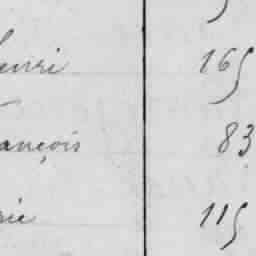 enri 165
ançois 83
rie 115